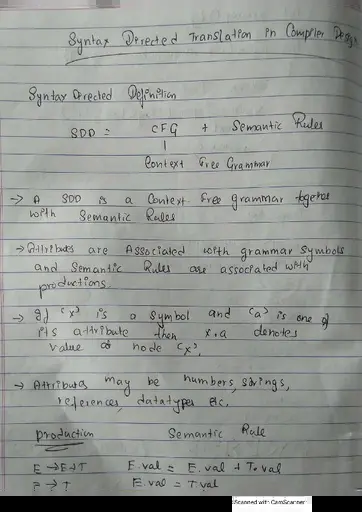 Syntax Directed Translation in Compiler Design
Syntax Directed Definition
SDD = CFG + Semantic Rules
Context Free Grammar
→ A SDD is a Context Free grammar together
with Semantic Rules
→ Attributes are Associated with grammar Symbols
and Semantic Rules are associated with
productions.
→ If 'x' is a Symbol and 'a' is one of
its attribute then x.a denotes
value at node 'x'.
→ Attributes may be numbers, strings,
references, datatypes etc.
production Semantic Rule
E → E+T E.val = E.val + T.val
E → T E.val = T.val
Scanned with CamScanner